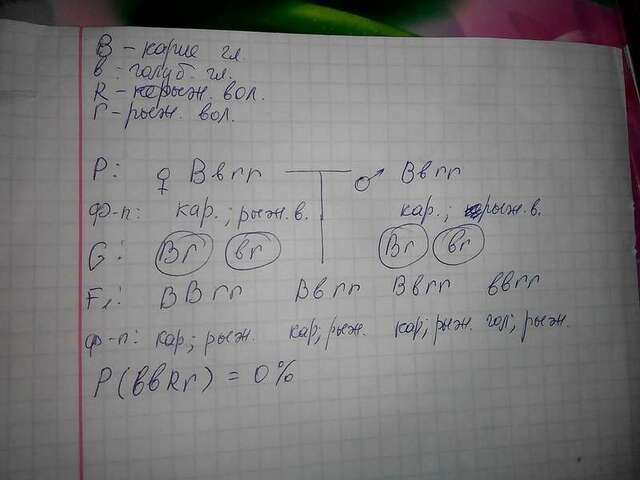 В – карие гл.
в: голуб. гл.
R – нерыж. вол.
r – рыж. вол.
P: ♀ Ввrr ♂ Ввrr
Ф-п: кар.; рыж. в. кар.; рыж. в.
G: Вr вr Вr вr
F₁: ВВrr Ввrr Ввrr ввrr
ф-п: кар; рыж. кар; рыж. кар; рыж. гол; рыж.
P(ввRr) = 0%